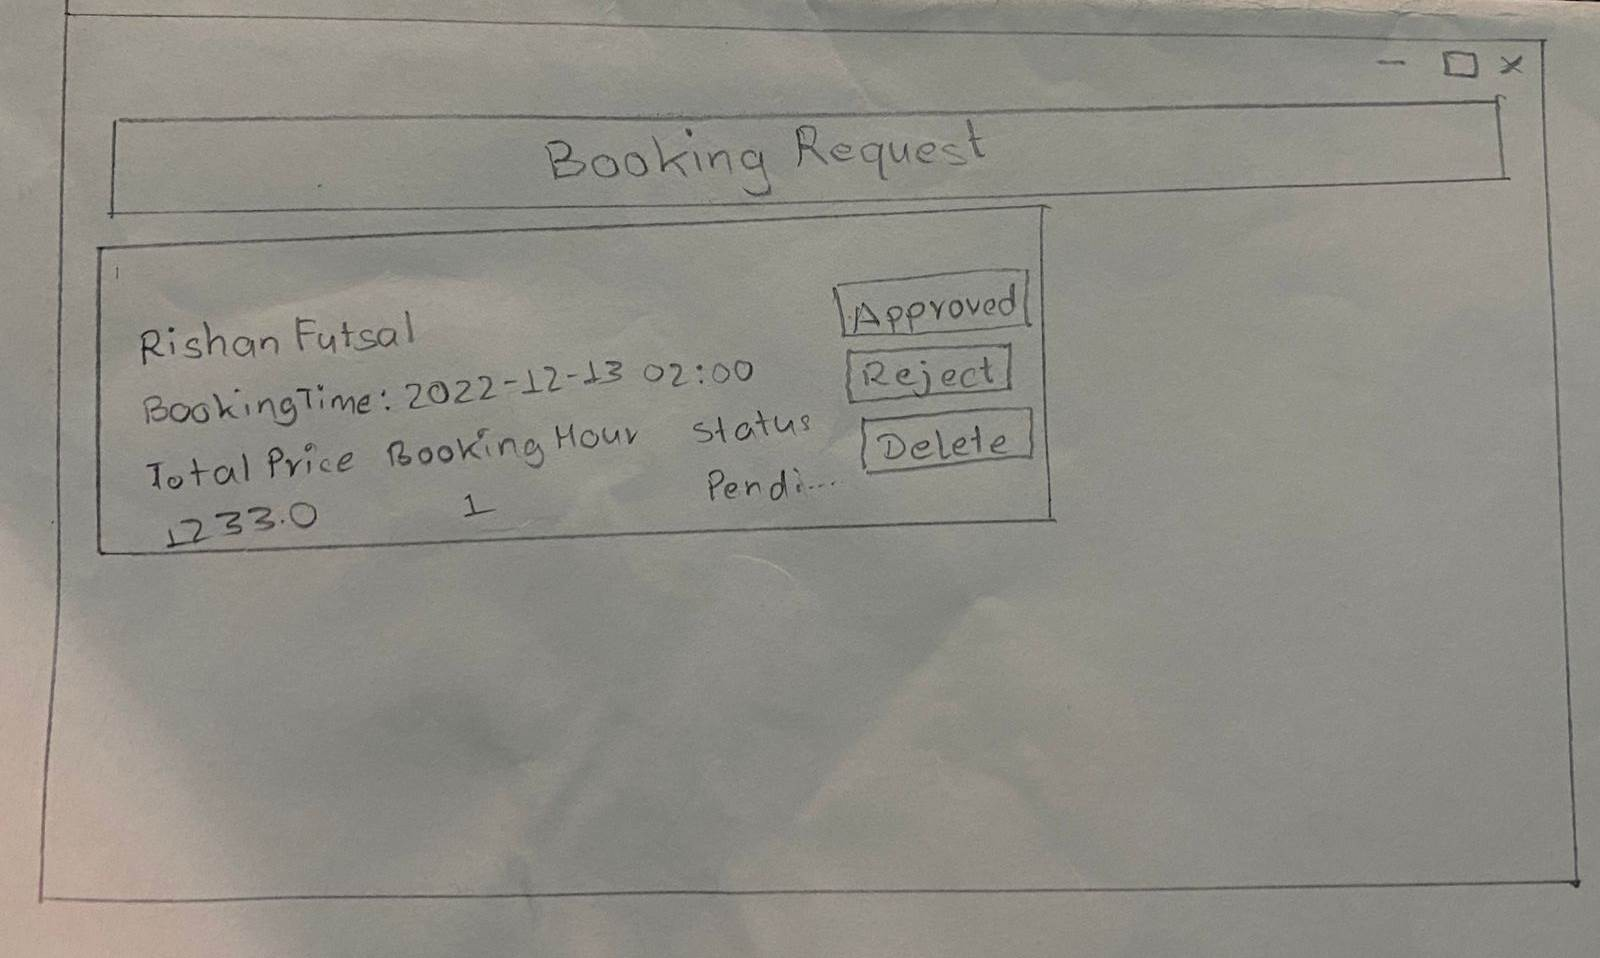 Booking Request
Rishan Futsal
Booking Time: 2022-12-13 02:00
Total Price Booking Hour Status
1233.0 1 Pendi...
Approved
Reject
Delete